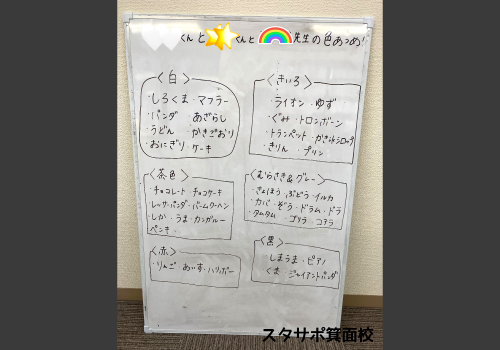 くんと くんと 先生の色あつめ!
〈白〉
・しろくま・マフラー
・パンダ あざらし
・うどん ・かきごおり
・おにぎり・ケーキ
〈きいろ〉
・ライオン・ゆず
・ぐみ・トロンボーン
・トランペット・かきごおりシロップ
・きりん ・プリン
〈茶色〉
・チョコレート チョコケーキ
・レッサーパンダ・バームクーヘン
・しか・うま・カンガルー
・ペンキ
〈むらさき&グレー〉
・きょほう ぶどう・イルカ
・カバ・ぞう・ドラム・ドラ
・タムタム ・ゴリラ・コアラ
〈赤〉
・りんご あいす・ハリボー
〈黒〉
・しまうま・ピアノ
くま・ジャイアントパンダ
スタサポ箕面校